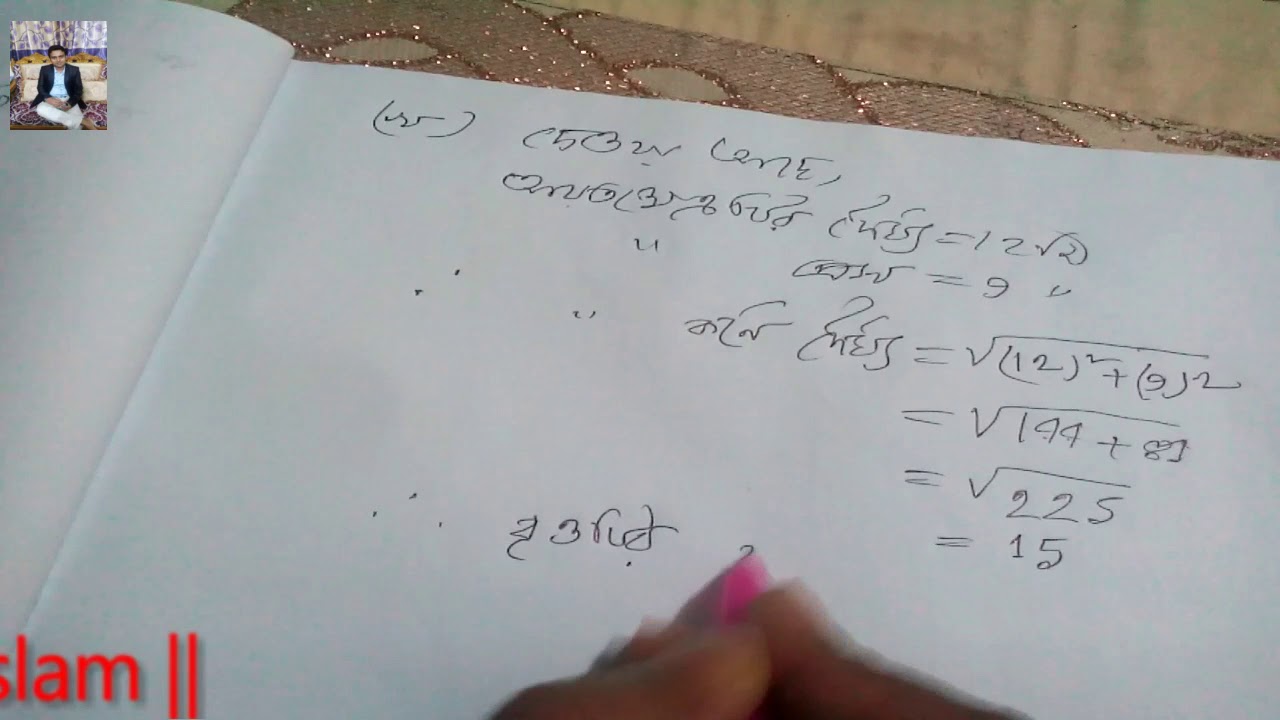 (খ) দেওয়া আছে,
আয়তক্ষেত্রটির দৈর্ঘ্য = 12
" প্রস্থ = 9 "
∴ " কর্ণের দৈর্ঘ্য = √(12)² + (9)2
= √144 + 81
= √225
= 15
∴ বৃত্তটির
slam ||